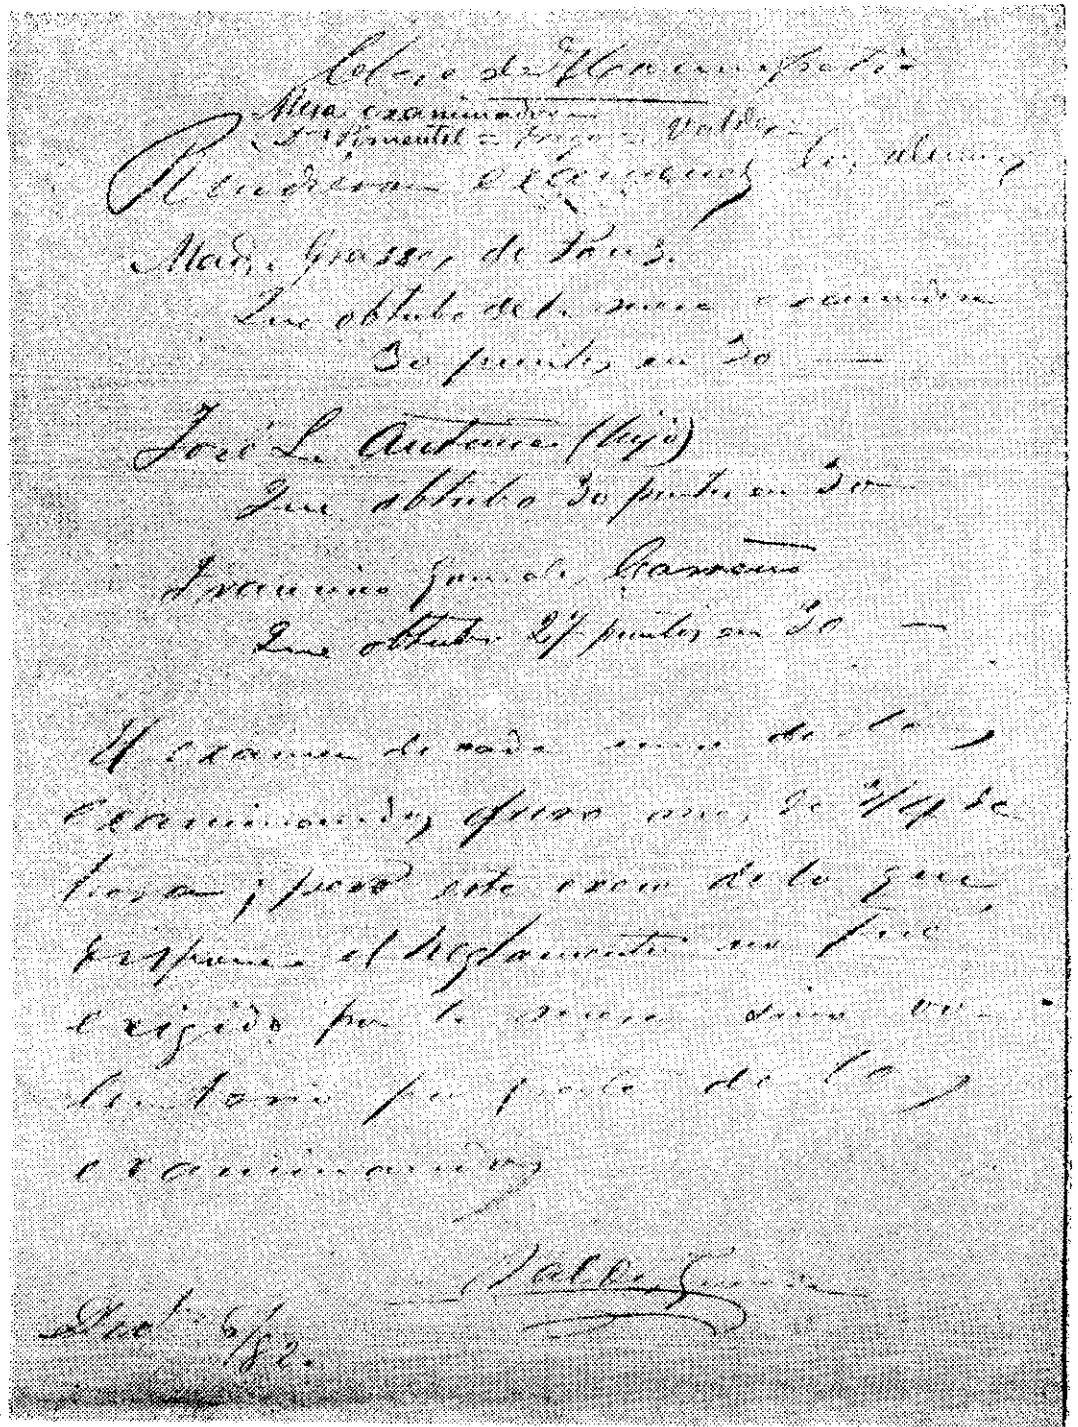 Colegio de Homeopatia
Mesa examinadora
Drs Pimentel = = Valdes
Rendieron examenes los alumnos
Mad. Grasso, de Pons.
Que obtubo de la mesa examinadora
30 puntos en 30 —
José L. Antuña (hijo)
Que obtubo 30 puntos en 30 —
Francisco Carreño
Que obtubo 27 puntos en 30 —
El examen de cada uno de los
examinandos, duro mas de 3/4 de
hora; pero este exceso de lo que
dispone el Reglamento no fué
exigido por la mesa sino vo-
luntario por parte de los
examinandos
Valdes
6/82.